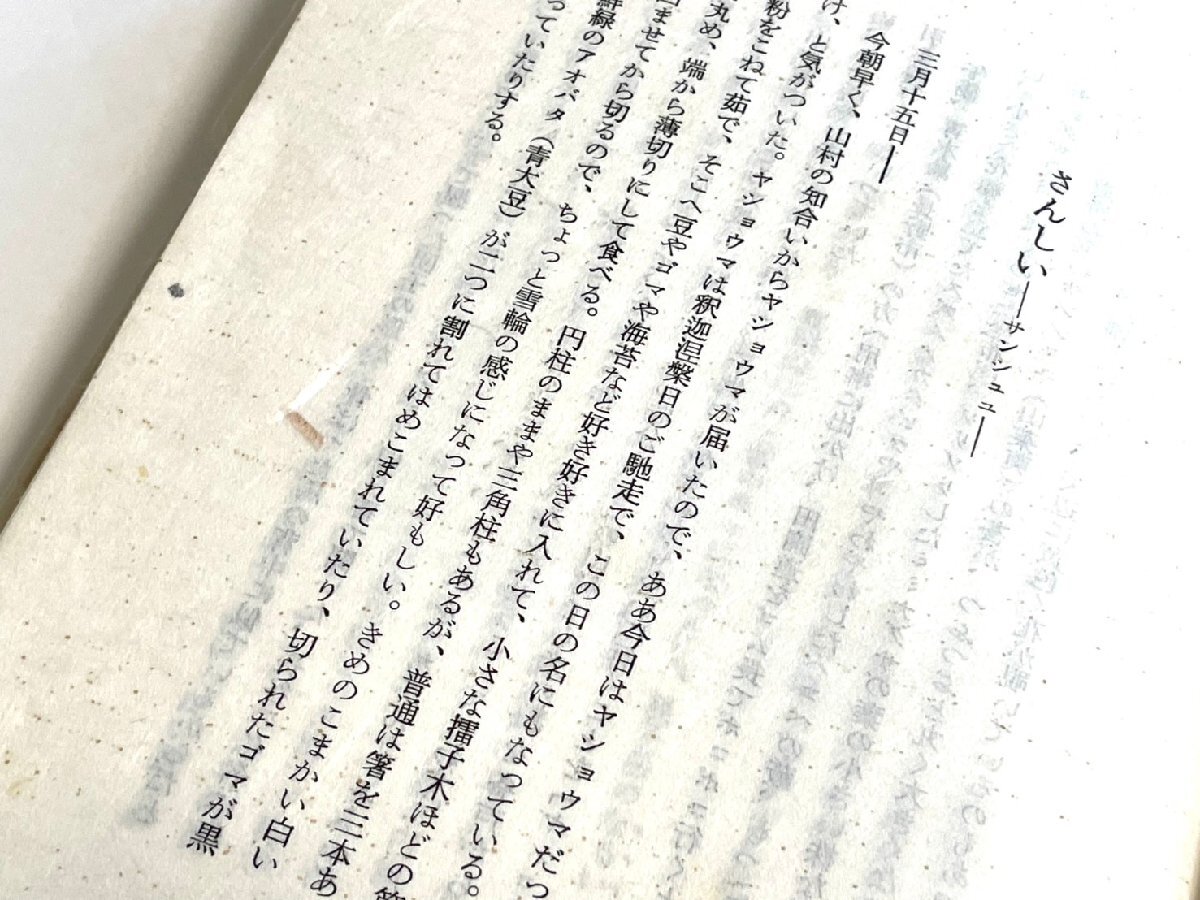 さんしい――サンシュュ――
三月十五日――
今朝早く、山村の知合いからヤショウマが届いたので、ああ今日はヤショウマだっ
け、と気がついた。ヤショウマは釈迦涅槃日のご馳走で、この日の名にもなっている。
粉をこねて茹で、そこへ豆やゴマや海苔など好き好きに入れて、小さな擂子木ほどの
丸め、端から薄切りにして食べる。円柱のままや三角柱もあるが、普通は箸を三本あ
ませてから切るので、ちょっと雪輪の感じになって好もしい。きめのこまかい白い
鮮緑のアオバタ（青大豆）が二つに割れてはめこまれていたり、切られたゴマが黒
っていたりする。